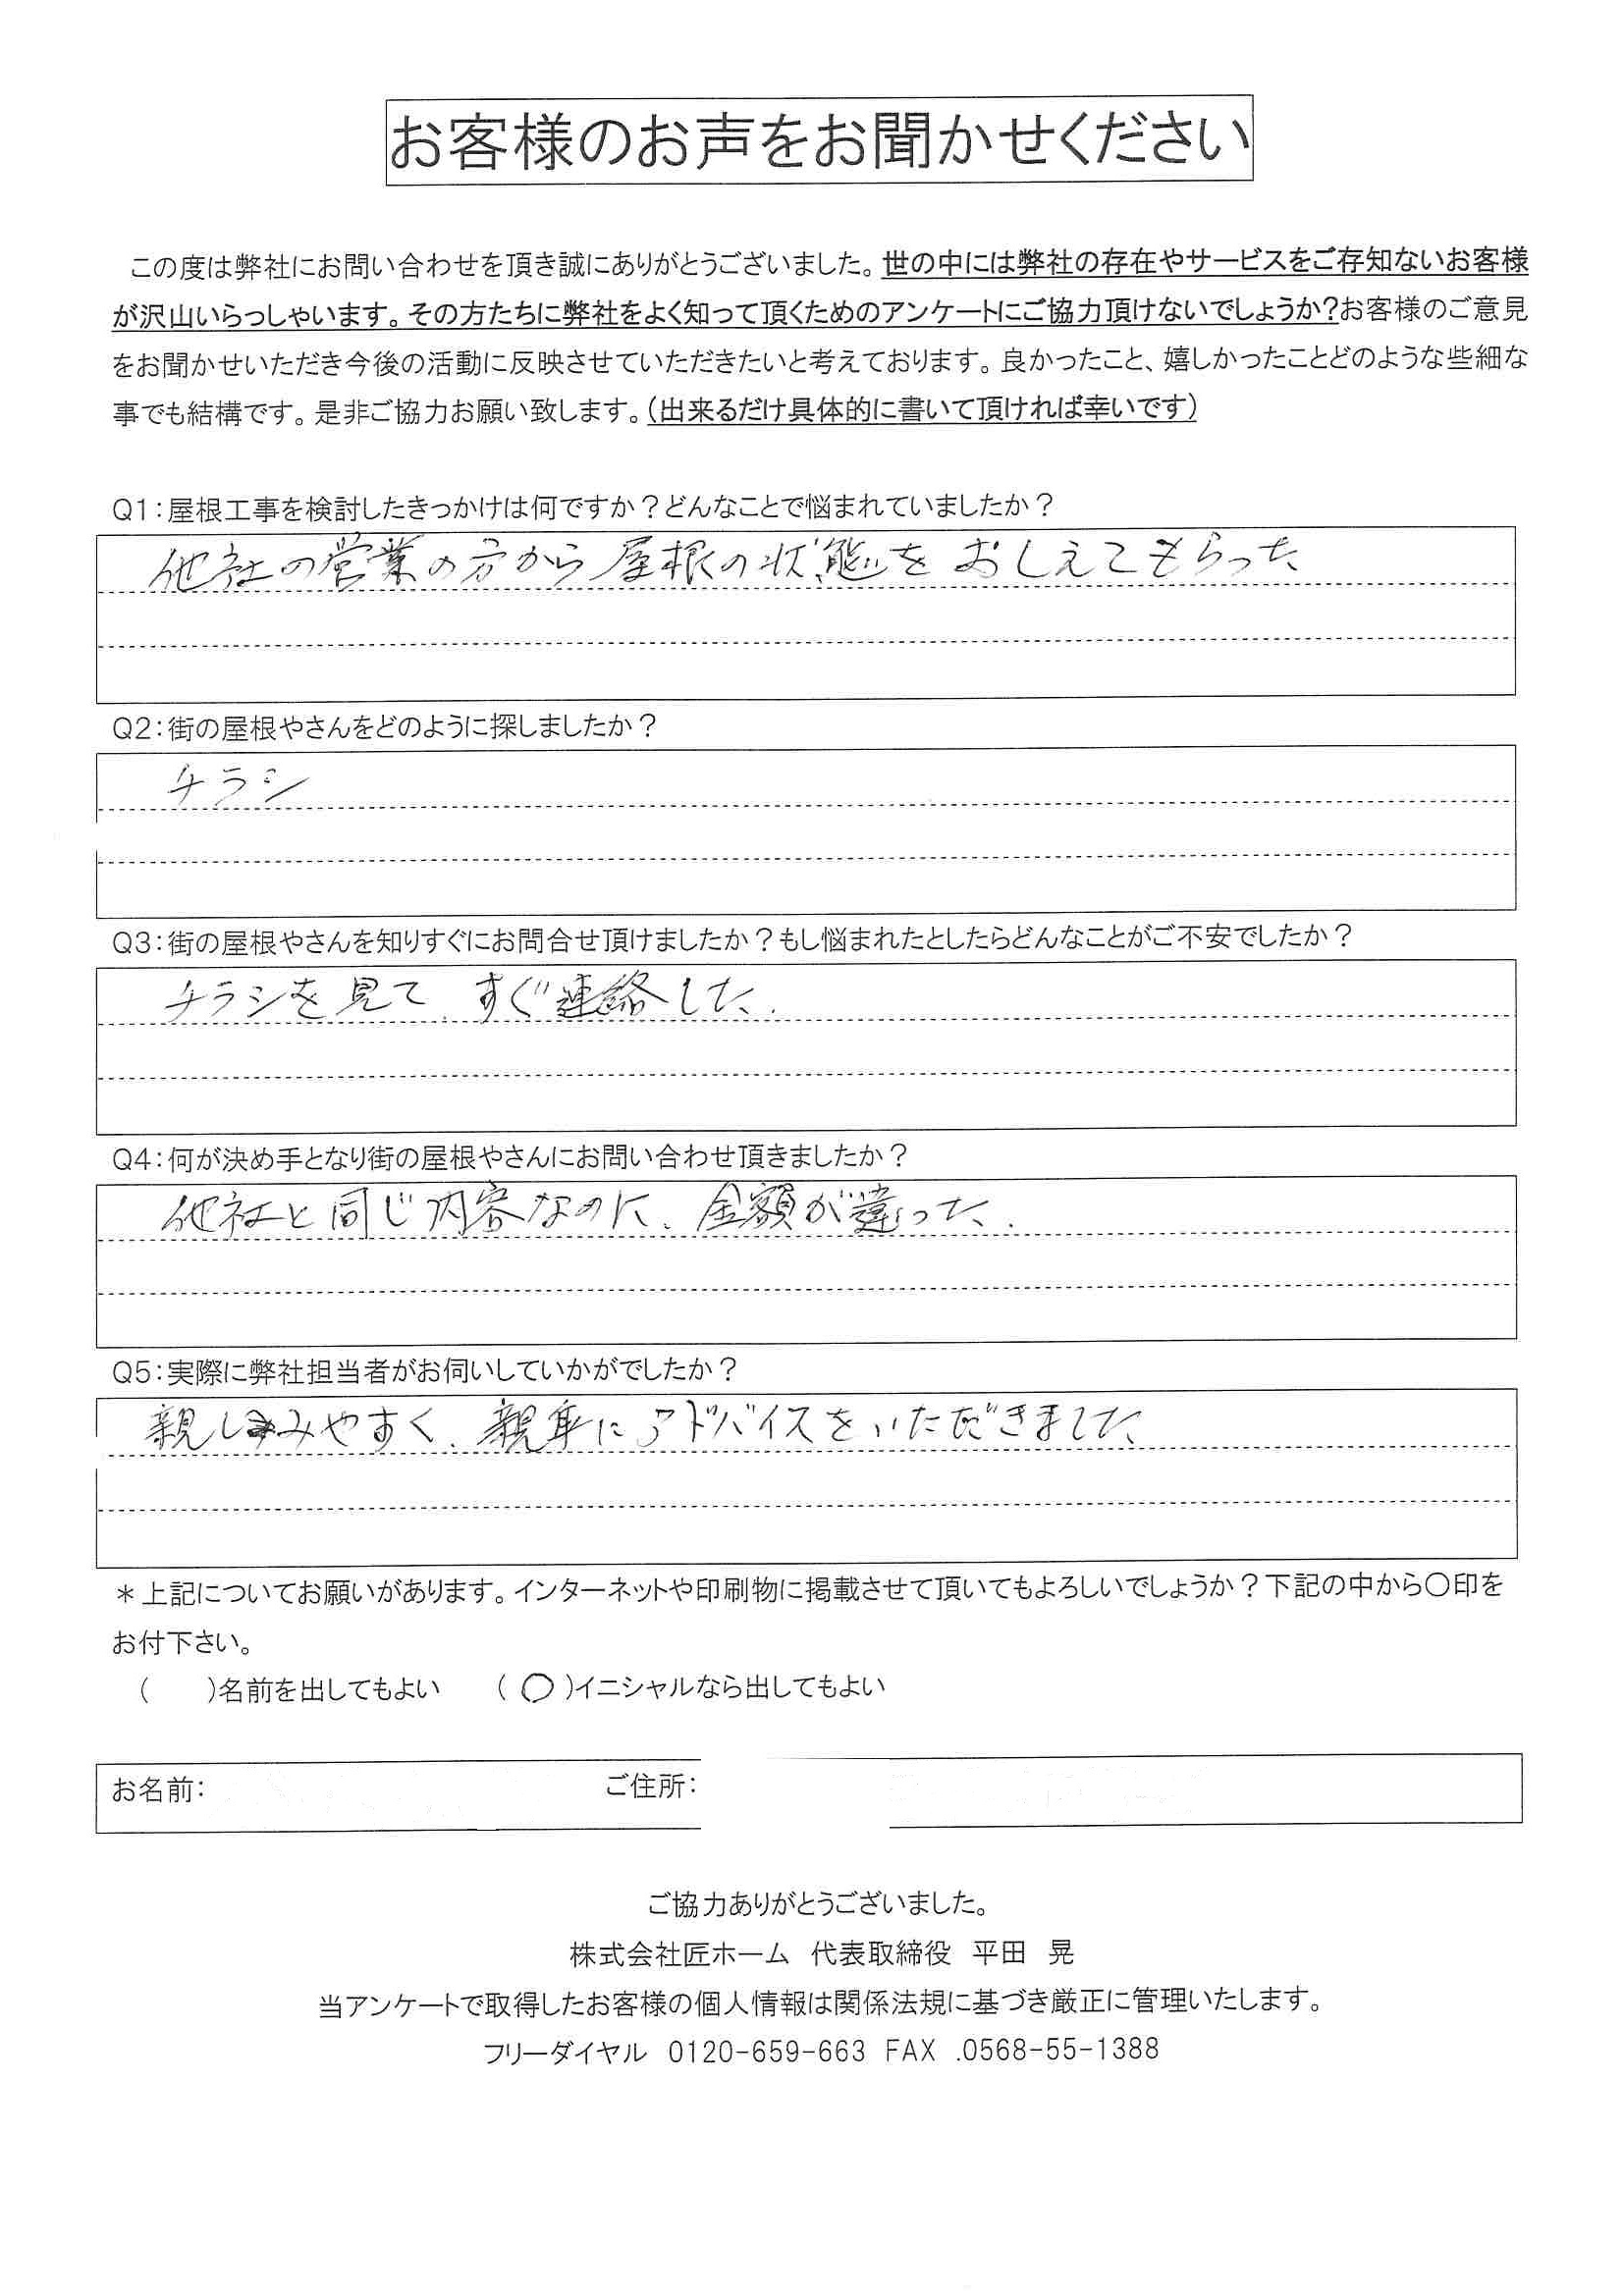 お客様のお声をお聞かせください
この度は弊社にお問い合わせを頂き誠にありがとうございました。世の中には弊社の存在やサービスをご存知ないお客様
が沢山いらっしゃいます。その方たちに弊社をよく知って頂くためのアンケートにご協力頂けないでしょうか?お客様のご意見
をお聞かせいただき今後の活動に反映させていただきたいと考えております。良かったこと、嬉しかったことどのような些細な
事でも結構です。是非ご協力お願い致します。(出来るだけ具体的に書いて頂ければ幸いです)
Q1:屋根工事を検討したきっかけは何ですか?どんなことで悩まれていましたか?
他社の営業の方から屋根の状態をおしえてもらった、
Q2:街の屋根やさんをどのように探しましたか?
チラシ
Q3:街の屋根やさんを知りすぐにお問合せ頂けましたか?もし悩まれたとしたらどんなことがご不安でしたか?
チラシを見て、すぐ連絡した、.
Q4:何が決め手となり街の屋根やさんにお問い合わせ頂きましたか?
他社と同じ内容なのに、金額が違った、.
Q5:実際に弊社担当者がお伺いしていかがでしたか?
親しみやすく、親身にアドバイスをいただきました、
*上記についてお願いがあります。インターネットや印刷物に掲載させて頂いてもよろしいでしょうか?下記の中から〇印を
お付下さい。
(　　)名前を出してもよい　　(〇)イニシャルなら出してもよい
お名前:　　ご住所:
ご協力ありがとうございました。
株式会社匠ホーム　代表取締役　平田　晃
当アンケートで取得したお客様の個人情報は関係法規に基づき厳正に管理いたします。
フリーダイヤル　0120-659-663 FAX .0568-55-1388